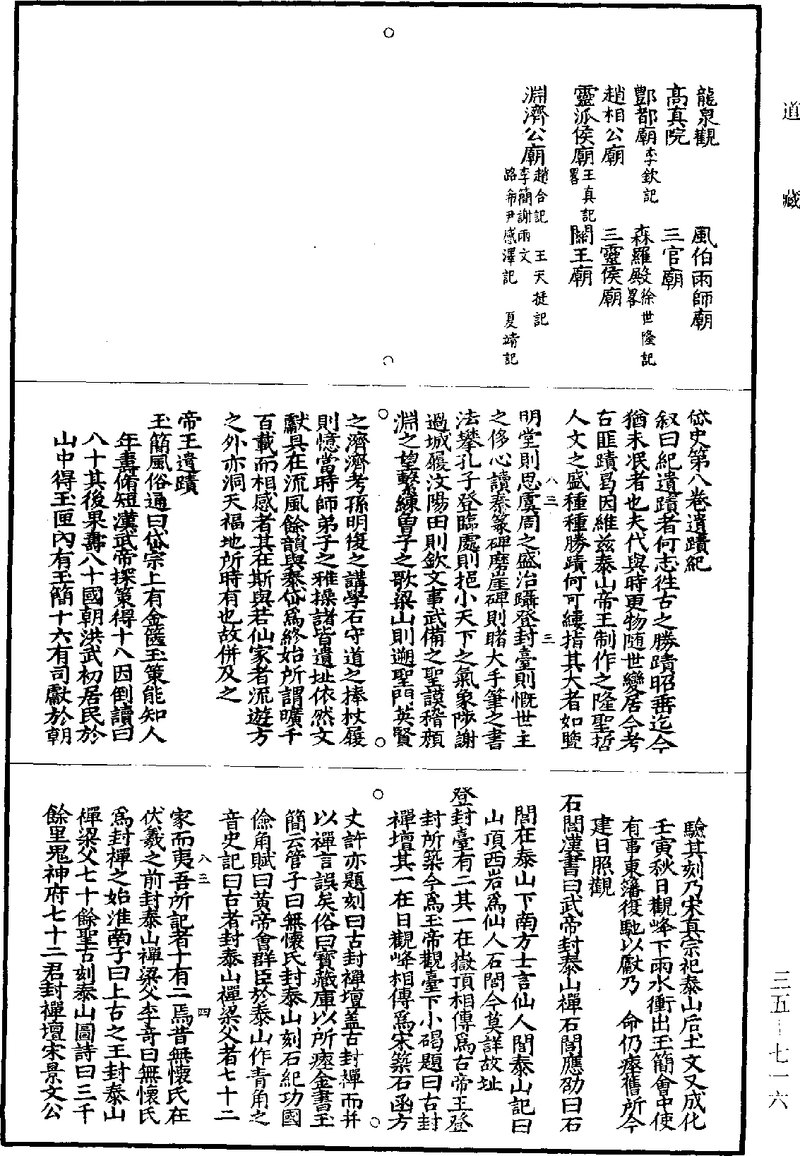 道藏
龍泉觀　風伯雨師廟
高真院　三官廟
酆都廟李欽記　森羅殿徐世隆記畧
趙相公廟　三靈侯廟
靈派侯廟王真記畧　關王廟
淵濟公廟趙合記　王天挺記
李簡謝雨文
路希尹感澤記　夏靖記
岱史第八卷遺蹟紀
叙曰紀遺蹟者何志徃古之勝蹟昭垂迄今
猶未泯者也夫代與時更物随世變居今考
右匪蹟曷因維兹泰山帝王制作之隆聖哲
人文之盛種種勝蹟何可縷指其大者如覽
八三
三
明堂則思虞周之盛治躡登封臺則慨世主
之侈心讀秦篆碑磨崖碑則睹大手筆之書
法攀孔子登臨處則挹小天下之氣象陟謝
過城履汶陽田則欽文事武備之聖謨稽顏
淵之望繫練曾子之歌梁山則遡聖門英賢
之濟濟考孫明復之講學石守道之捧杖履
則憶當時師弟子之雅操諸皆遺址依然文
獻具在流風餘韻與泰岱爲終始所謂曠千
百載而相感者其在斯與若仙家者流遊方
之外亦洞天福地所時有也故併及之
帝王遺蹟
玉簡風俗通曰岱宗上有金篋玉策能知人
年壽脩短漢武帝探策得十八因倒讀曰
八十其後果壽八十國朝洪武初居民於
山中得玉匣內有玉簡十六有司獻於朝
驗其刻乃宋真宗祀泰山后土文又成化
壬寅秋日觀峰下雨水衝出玉簡會中使
有事東藩復馳以獻乃　命仍瘞舊所今
建日照觀
石閭漢書曰武帝封泰山禪石閭應劭曰石
閭在泰山下南方士言仙人閭泰山記曰
山頂西岩爲仙人石閭今莫詳故址
登封臺有二其一在嶽頂相傳爲古帝王登
封所築今爲玉帝觀臺下小碣題曰古封
禪壇其一在日觀峰相傳爲宋築石函方
丈許亦題刻曰古封禪壇盖古封禪而并
以禪言誤矣俗曰寳藏庫以所瘞金書玉
簡云管子曰無懷氏封泰山刻石紀功國
儉角賦曰黃帝會群臣於泰山作青角之
音史記曰古者封泰山禪梁父者七十二
八三
四
家而夷吾所記者十有二焉昔無懷氏在
伏羲之前封泰山禪梁父李奇曰無懷氏
爲封禪之始淮南子曰上古之王封泰山
禪梁父七十餘聖古刻泰山圖詩曰三千
餘里鬼神府七十二君封禪壇宋景文公
三五—七一六